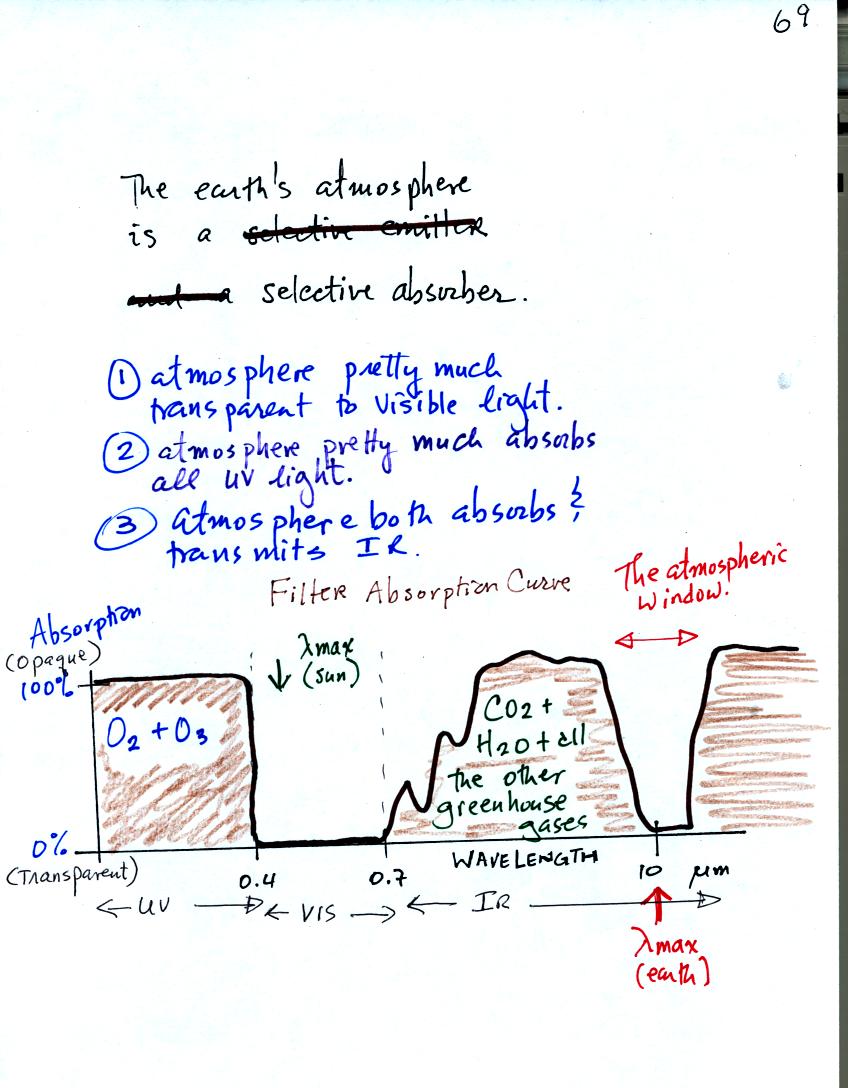 69
The earth's atmosphere
is a selective emitter
and a selective absorber.
① atmosphere pretty much
transparent to visible light.
② atmosphere pretty much absorbs
all UV light.
③ atmosphere both absorbs &
transmits IR.
Filter Absorption Curve
The atmospheric
window.
Absorption
(opaque)
100%
λmax
(sun)
O2 + O3
CO2 +
H2O + all
the other
greenhouse
gases
0%
(Transparent)
WAVELENGTH
0.4
0.7
10
μm
UV
VIS
IR
λmax
(earth)